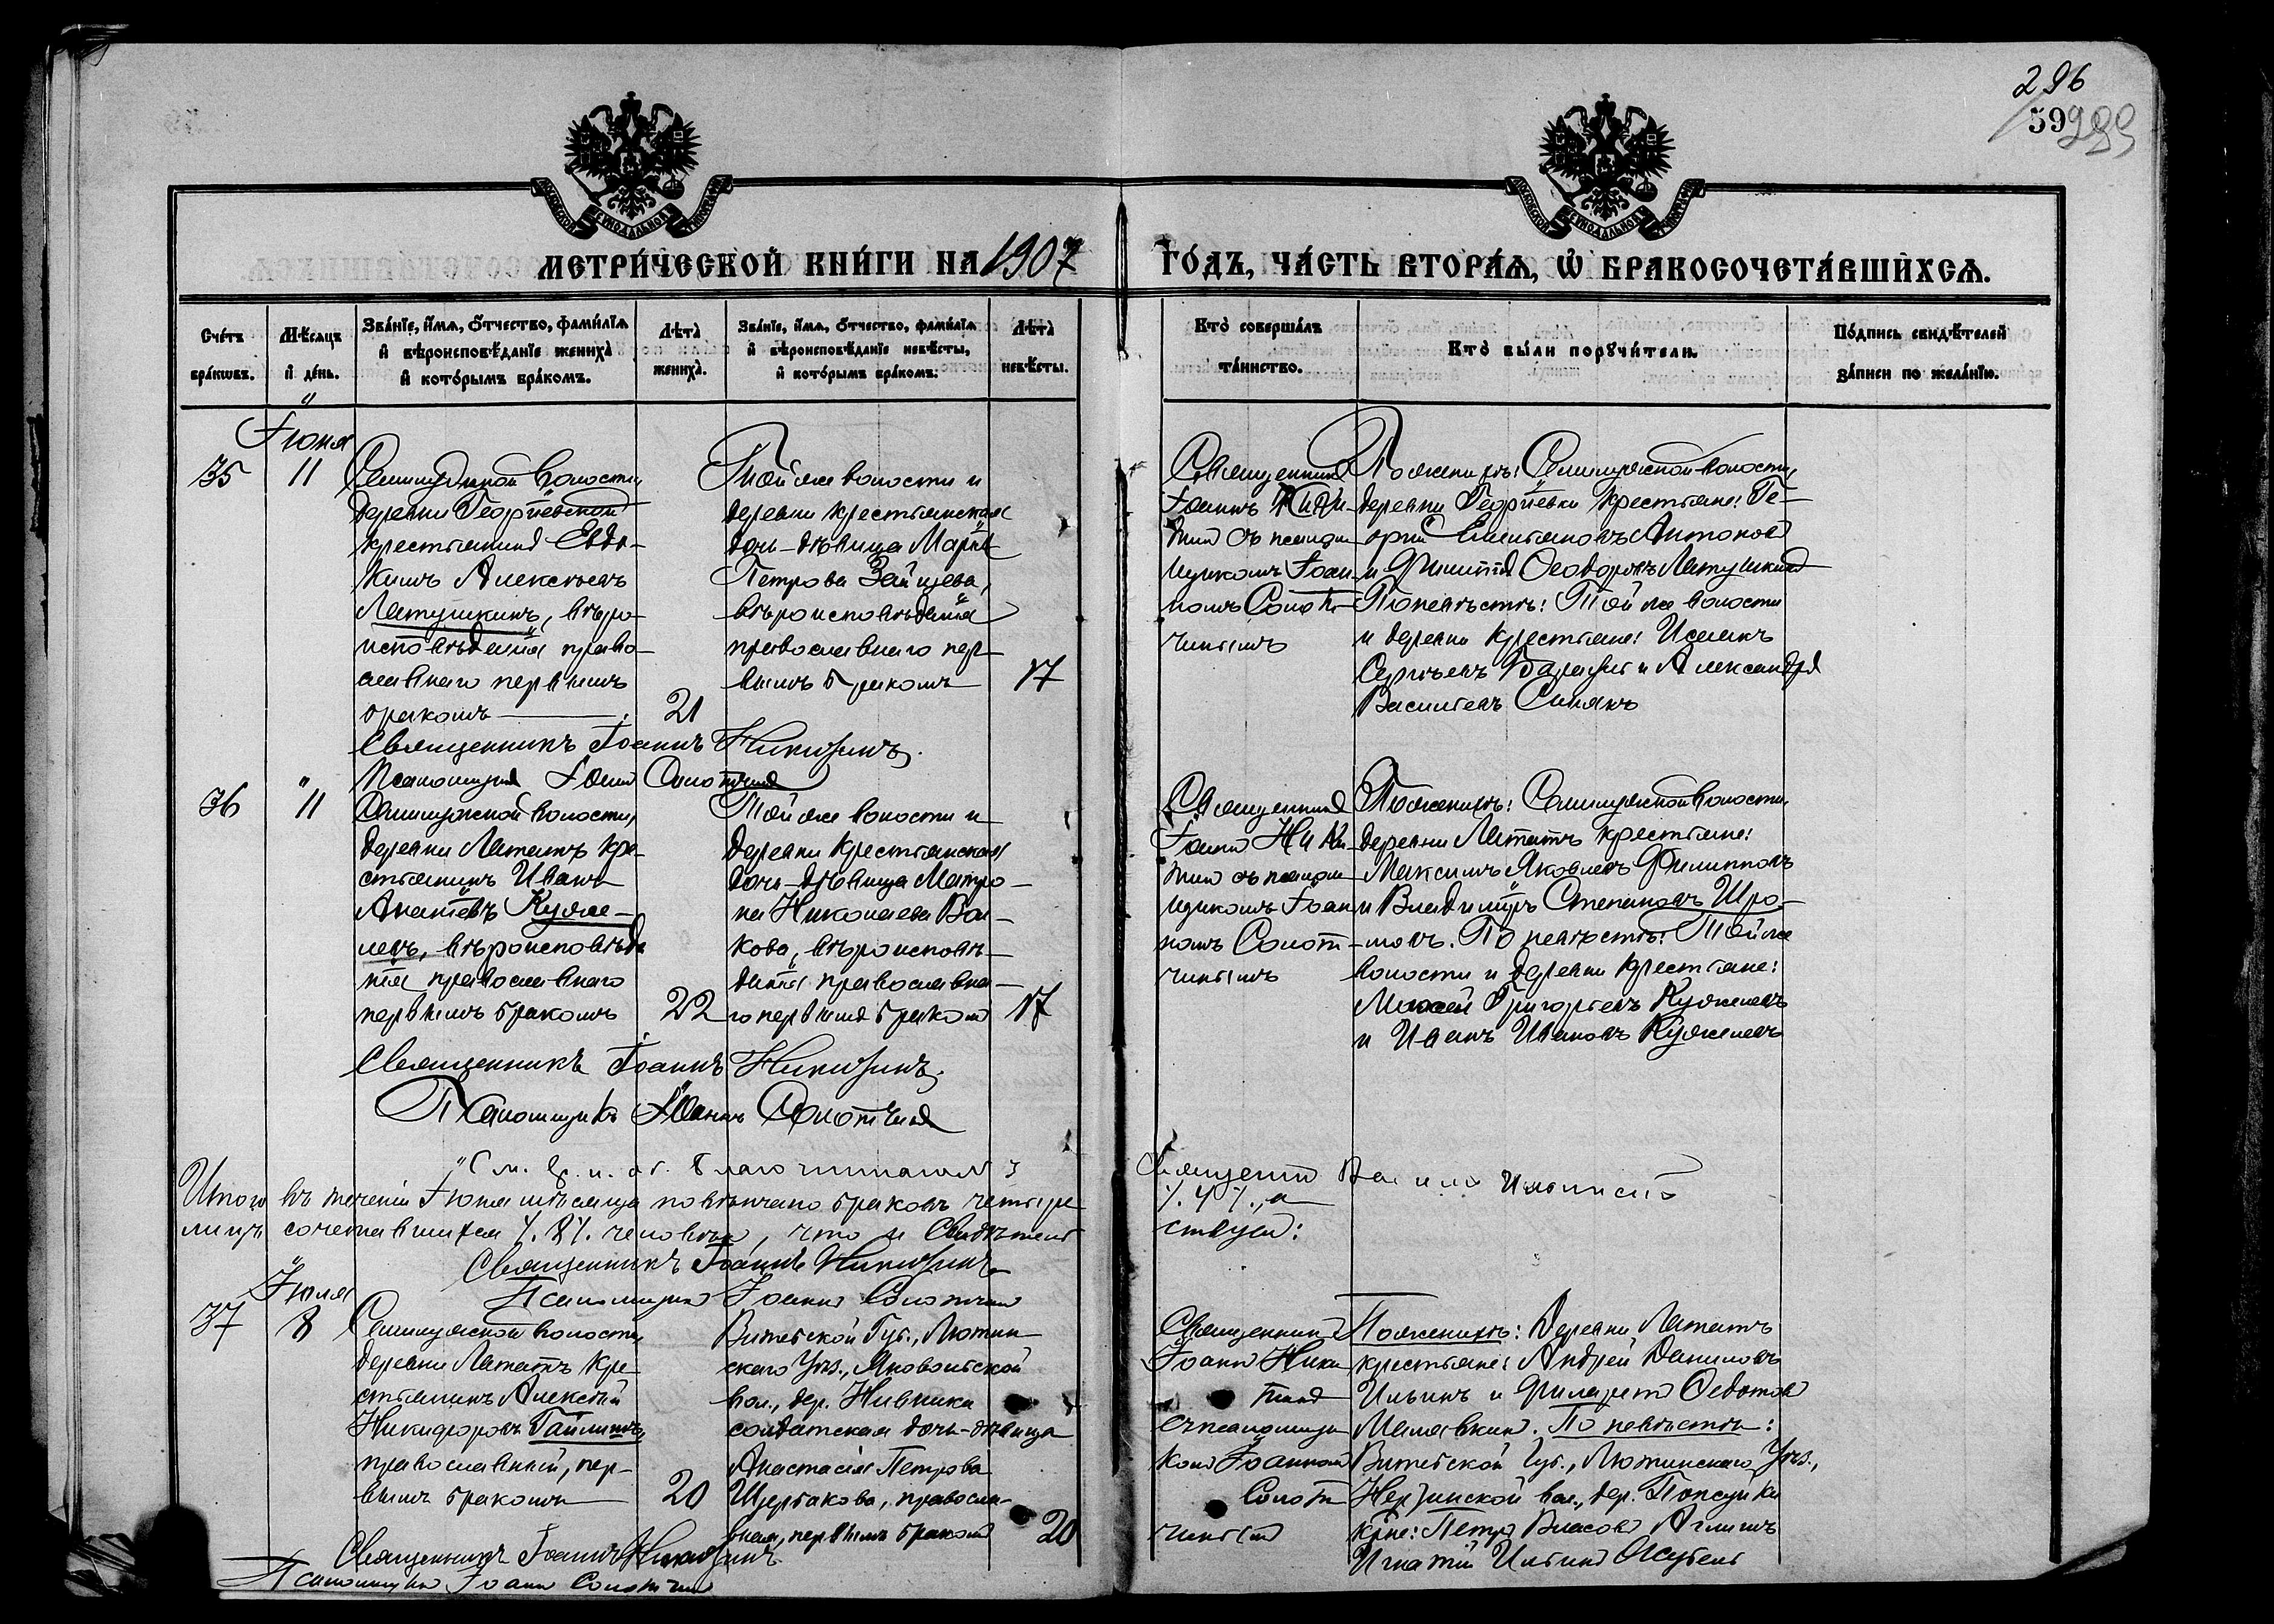 296
59
299
МЕТРИ́ЧЕСКОЙ КНИ́ГИ НА 1907 ГО́ДЪ, ЧА́СТЬ ВТОРА́Ѧ, Ѡ҆ БРАКОСОЧЕТА́ВШИХСѦ.
Сче́тъ бра́кωвъ.
Мѣ́сяцъ и҆ де́нь.
Зва́нїе, и҆́мѧ, ѻ҆́тчество, фами́лїѧ и҆ вѣроисповѣ́данїе женихà и҆ кото́рымъ бра́комъ.
Лѣ́та женихà.
Зва́нїе, и҆́мѧ, ѻ҆́тчество, фами́лїѧ и҆ вѣроисповѣ́данїе невѣ́сты, и҆ кото́рымъ бра́комъ.
Лѣ́та невѣ́сты.
Ктò соверша́лъ та́инство.
Ктò бы́ли порꙋчи́тели.
По́дпись свидѣ́телей за́писи по жела́нїю.
Іюня
35
11
волости,
деревни Георгіевской
крестьянинъ Евдо-
кимъ Алексѣевъ
Латушкинъ, вѣро-
исповѣданія право-
славнаго первымъ
бракомъ
21
Той же волости и
деревни крестьянская
дочь-дѣвица Марія
Петрова Зайцева,
вѣроисповѣданія
православнаго пер-
вымъ бракомъ
17
Священникъ
Іоаннъ Ники-
тинъ съ псалом-
щикомъ Іоан-
номъ Солот-
чинымъ
По женихѣ: волости,
деревни Георгіевки крестьяне: Ге-
оргій Емельяновъ Антоновъ
и Филиппъ Ѳеодоровъ Латушкинъ
По невѣстѣ: Той же волости
и деревни крестьяне: Исаакъ
Сергѣевъ и Александръ
Васильевъ
Священникъ Іоаннъ Никитинъ.
Псаломщикъ Іоаннъ Солотчинъ
36
11
волости,
деревни Лататъ кре-
стьянинъ Иванъ
Кужле-
левъ, вѣроисповѣда
нія православнаго
первымъ бракомъ
22
Той же волости и
деревни крестьянская
дочь-дѣвица Матро-
на Николаева Вол-
кова, вѣроисповѣ-
данія православна-
го первымъ бракомъ
17
Священникъ
Іоаннъ Ники-
тинъ съ псалом-
щикомъ Іоан
номъ Солот-
чинымъ
По женихѣ: волости,
деревни Лататъ крестьяне:
Максимъ Яковлевъ Филипповъ
и Владиміръ Степановъ
По невѣстѣ: Той же
волости и деревни крестьяне:
Моисей Григорьевъ
и Иванъ Ивановъ
Священникъ Іоаннъ Никитинъ.
Псаломщикъ Іоаннъ Солотчинъ
Итого въ теченіи Іюня мѣсяца повѣнчано браковъ четыре /.4/., а
лицъ сочетавшихся /.8/. человѣкъ, что и свидѣтель
ствуемъ:
Священникъ Іоаннъ Никитинъ
Псаломщикъ Іоаннъ Солотчинъ
Іюля
37
8
волости,
деревни Лататъ кре-
стьянинъ Алексѣй
Никифоровъ Гайлишъ,
православный, пер-
вымъ бракомъ
20
Витебской Губ., Люцин
скаго Уѣз.,
вол., дер. Нивники
солдатская дочь-дѣвица
Анастасія Петрова
Щербакова, православ-
ная, первымъ бракомъ
20
Священникъ
Іоаннъ Ники
тинъ
съ псаломщи
комъ Іоанномъ
Солот
чинымъ
По женихѣ: Деревни Лататъ
крестьяне: Андрей Даниловъ
Ильинъ и Филаретъ Ѳедотовъ
По невѣстѣ:
Витебской Губ., Люцинскаго Уѣз.,
вол., дер.
кр-не: Петръ Власовъ
Игнатій
Священникъ Іоаннъ Никитинъ
Псаломщикъ Іоаннъ Солотчинъ